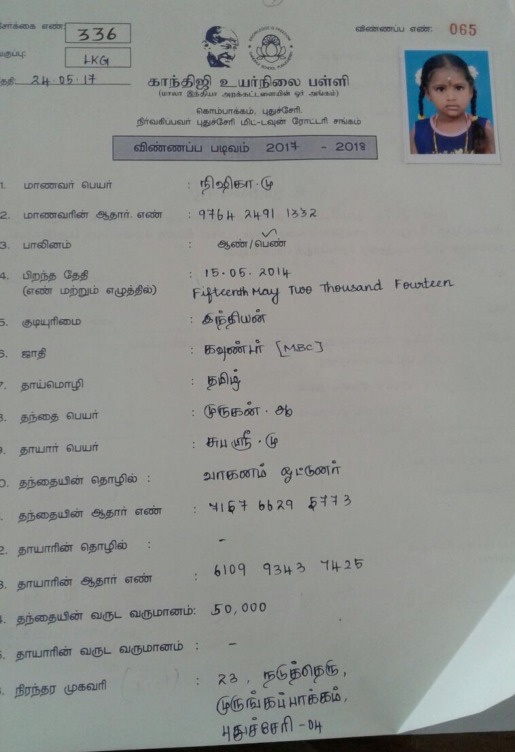 சேர்க்கை எண்: 336
விண்ணப்ப எண்: 065
வகுப்பு: LKG
தேதி 24.05.17
காந்திஜி உயர்நிலை பள்ளி
(மாலா இந்தியா அறக்கட்டளையின் ஓர் அங்கம்)
கொம்பாக்கம், புதுச்சேரி.
நிர்வகிப்பவர் புதுச்சேரி மிட்-டவுன் ரோட்டரி சங்கம்
விண்ணப்ப படிவம் 2017 - 2018
1. மாணவர் பெயர் : நிஷிகா.மு
2. மாணவரின் ஆதார் எண் : 9764 2491 1332
3. பாலினம் : ஆண்/பெண்
4. பிறந்த தேதி : 15.05.2014
(எண் மற்றும் எழுத்தில்) Fifteenth May Two Thousand Fourteen
5. குடியுரிமை : இந்தியன்
6. ஜாதி : கவுண்டர் [MBC]
7. தாய்மொழி : தமிழ்
8. தந்தை பெயர் : முருகன்.ஆ
9. தாயார் பெயர் : சுபஸ்ரீ.மு
0. தந்தையின் தொழில் : வாகனம் ஓட்டுனர்
. தந்தையின் ஆதார் எண் : 7157 6629 5773
2. தாயாரின் தொழில் : -
3. தாயாரின் ஆதார் எண் : 6109 9343 7425
4. தந்தையின் வருட வருமானம்: 50,000
5. தாயாரின் வருட வருமானம் : -
6. நிரந்தர முகவரி : 23, நடுத்தெரு,
முருங்கப்பாக்கம்,
புதுச்சேரி-04